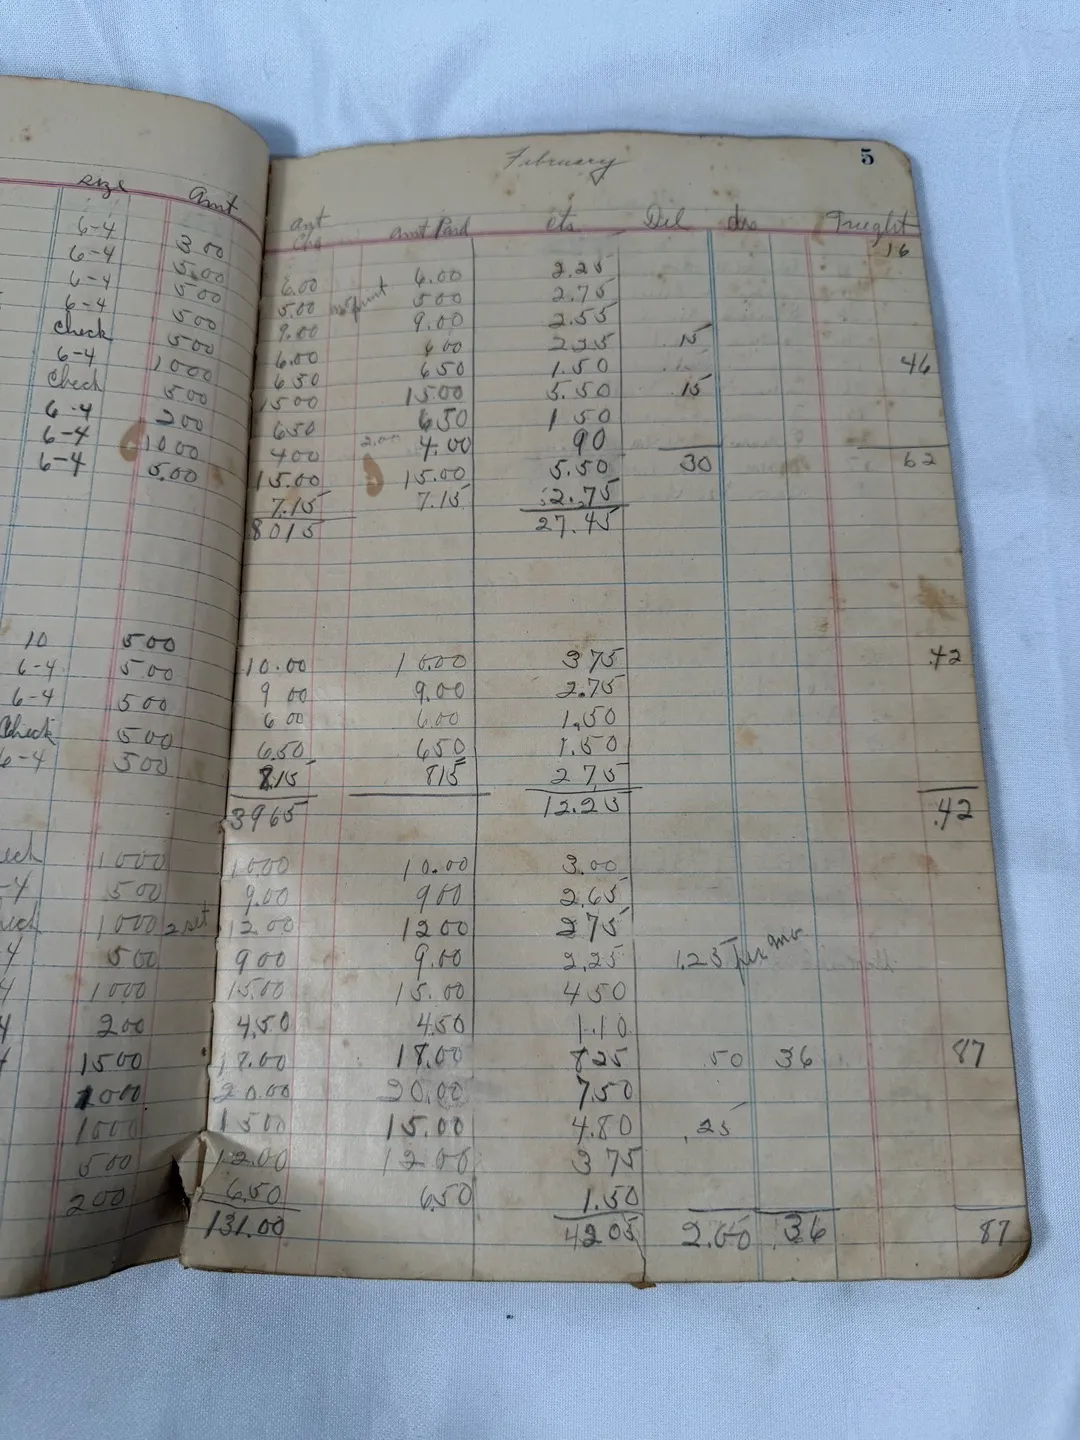 size Amt.
6-4 3.00
6-4 5.00
6-4 500
6-4 500
Check 500
6-4 1000
Check 500
6-4 200
6-4 1000
6-4 5.00
10 500
6-4 500
6-4 500
Check 500
6-4 500
1000
-4 500
1000 2 set
4 500
4 1000
4 200
1500
1000
1000
500
200
February 5
amt Chg amt Paid cts Del Freight
16
6.00 6.00 2.25
5.00 no print 500 2.75
9.00 9.00 2.55
6.00 600 225 15
650 650 1.50 46
1500 15.00 5.50 15
650 6.50 1 50
400 2.00 4.00 90
15.00 15.00 5.50 30 62
7.15 7.15 2.75
8015 27.45
10.00 10.00 375 .42
9 00 9.00 2.75
6 00 6.00 1.50
6.50 650 1.50
8.15 815 275
3965 12.25 .42
1000 10.00 3.00
9.00 900 2.65
12 00 1200 275
900 9.00 2.25 1.25 per mo
15.00 15.00 450
4.50 4.50 1.10
18.00 18.00 825 .50 36 87
20.00 20.00 7.50
1500 15.00 4.80 .25
12.00 1200 375
6.50 6.50 1.50
131.00 4205 2.00 .36 87